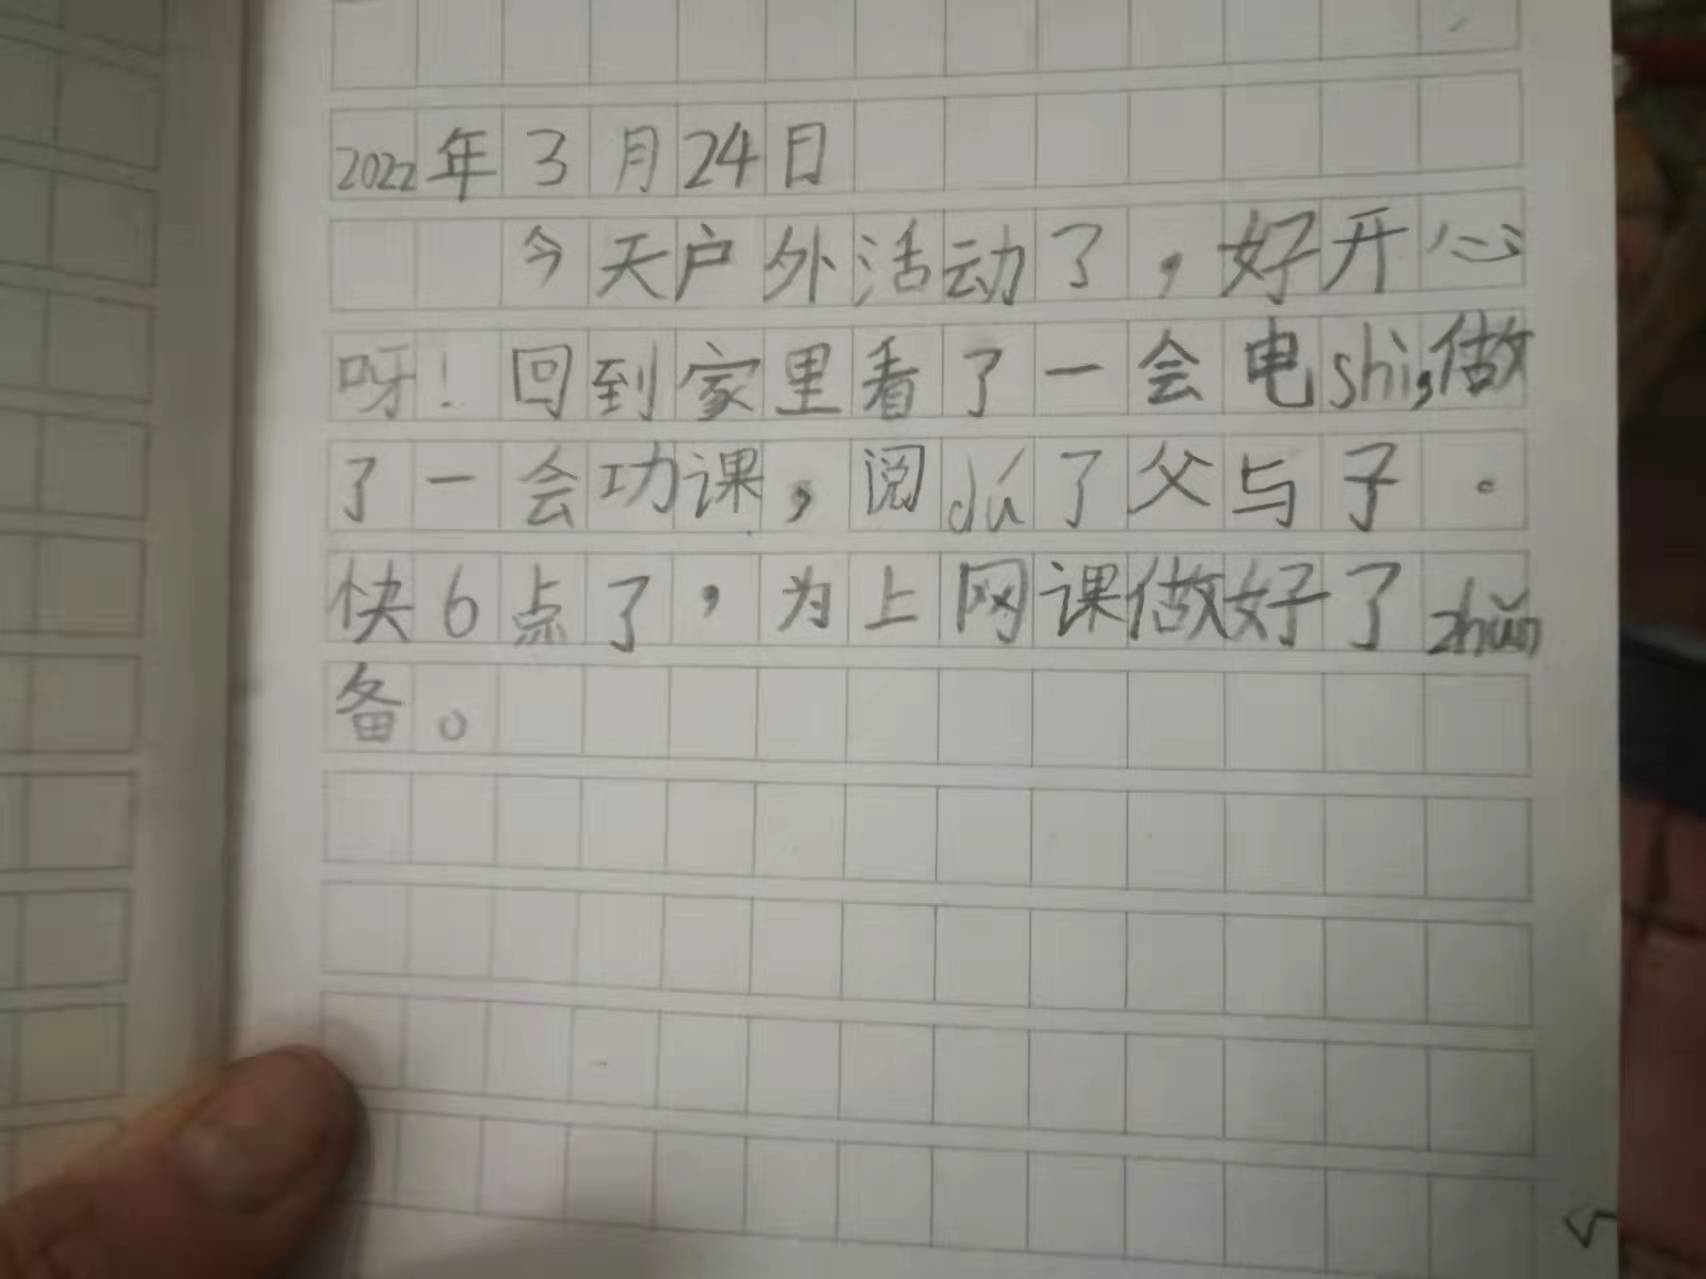 2022年3月24日
今天户外活动了，好开心
呀！回到家里看了一会电shì,做
了一会功课，阅dú了父与子。
快6点了，为上网课做好了zhǔn
备。